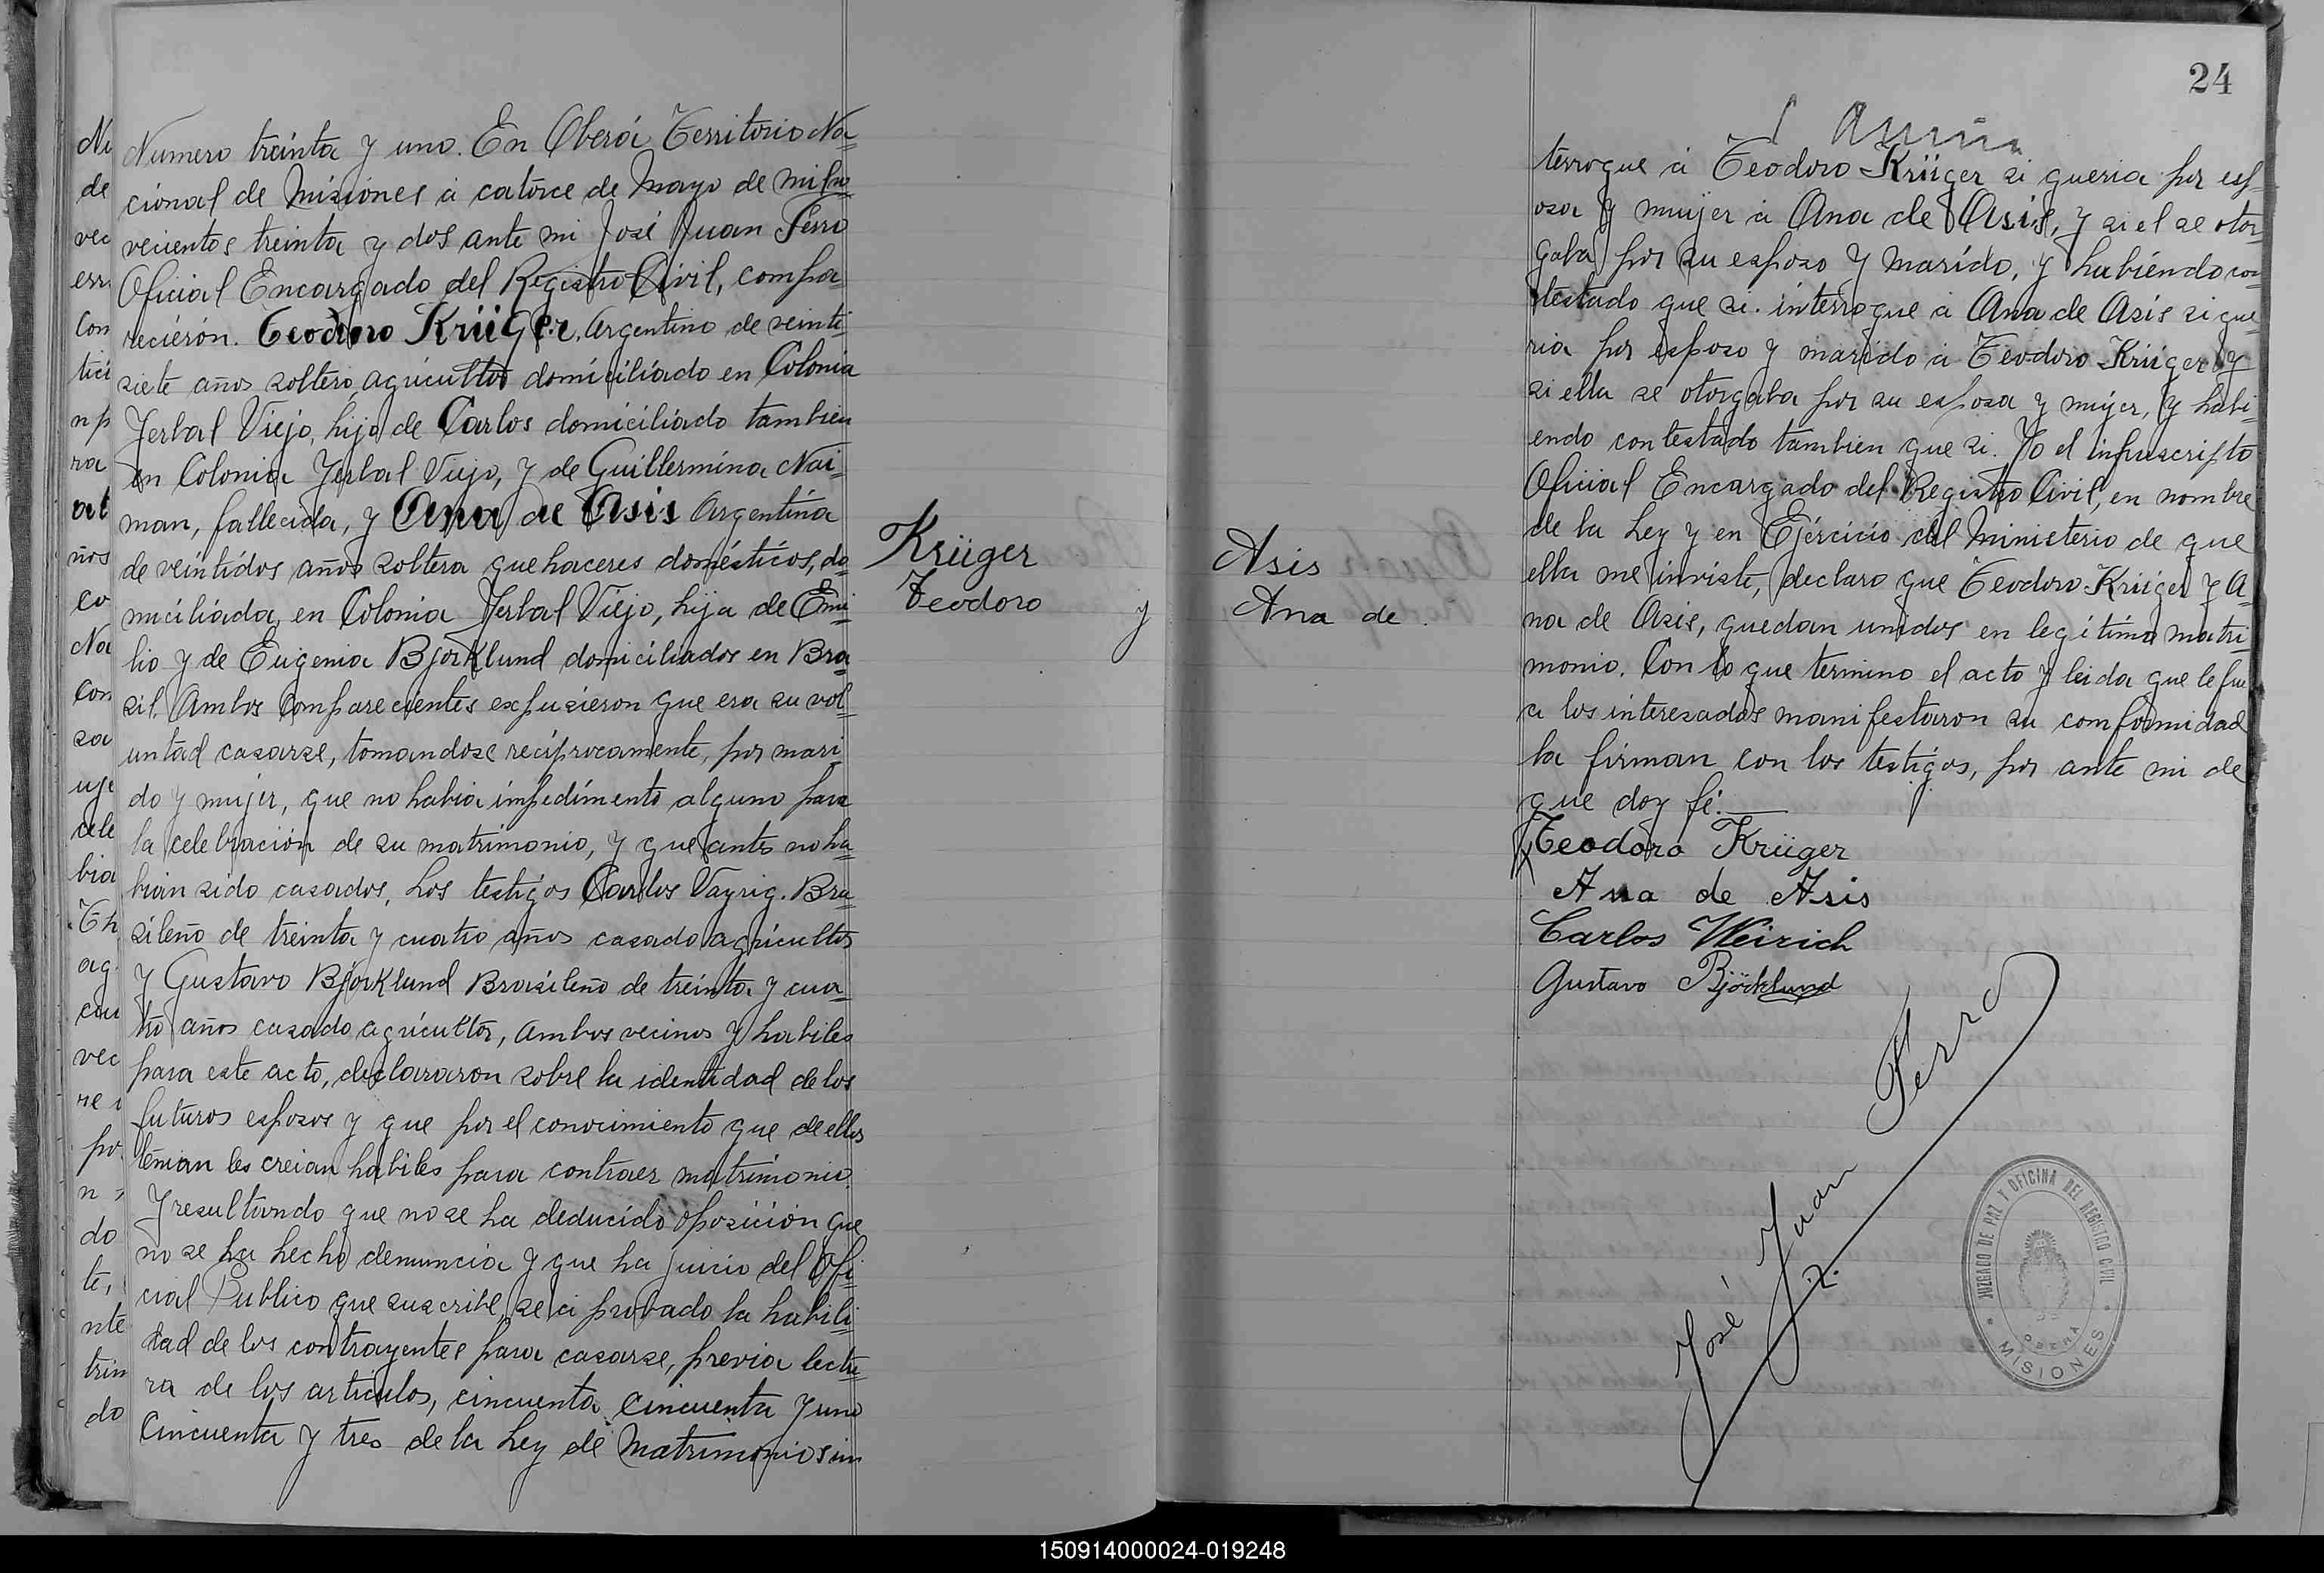 Numero treinta y uno. En Oberá Territorio Na=
cional de Misiones á catorce de Mayo de mil no=
vecientos treinta y dos ante mi José Juan Ferro
Oficial Encargado del Registro Civil, compa=
recierón. Teodoro Krüger, Argentino de veinti=
siete años soltero agricultor domiciliado en Colonia
Yerbal Viejo, hijo de Carlos domiciliado tambien
en Colonia Yerbal Viejo, y de Guillermina Nai=
man, fallecida, y Ana de Asis Argentina
de veintidos años soltera quehaceres domésticos, do=
miciliada, en Colonia Yerbal Viejo, hija de Emi=
lio y de Eugenia Bjorklund domiciliados en Bra=
sil. Ambos Comparecientes expusieron que era su vol=
untad casarse, tomandose recíprocamente, por mari=
do y mujer, que no habia impedimento alguno para
la celebración de su matrimonio, y que antes no ha=
bian sido casados, Los testigos Carlos Vayrig. Bra=
sileño de treinta y cuatro años casado agricultor
y Gustavo Bjorklund Brasileño de treinta y cua=
tro años casado agricultor, ambos vecinos y habiles
para este acto, declararon sobre la identidad de los
futuros esposos y que por el conocimiento que de ellos
tenian les creian habiles para contraer matrimonio.
Y resultando que no se ha deducido oposición que
no se ha hecho denuncia y que ha juicio del Ofi=
cial Publico que suscribe, se á probado la habili=
dad de los contrayentes para casarse, previa lectu=
ra de los articulos, cincuenta, Cincuenta y uno
Cincuenta y tres de la Ley de Matrimonio sin
Krüger
Teodoro y
Asis
Ana de
24
terrogue á Teodoro Krüger si queria por esp=
osa y mujer á Ana de Asis, y si el se otor=
gaba por su esposo y marido, y habiendo con=
testado que si. interrogue á Ana de Asis si que=
ria por esposo y marido á Teodoro Krüger y
si ella se otorgaba por su esposa y mujer, y habi=
endo contestado tambien que si. Yo el infrascripto
Oficial Encargado del Registro Civil, en nombre
de la Ley y en Ejercicio del Ministerio de que
ella me inviste, declaro que Teodoro Krüger y A=
na de Asis, quedan unidos en legítimo matri=
monio. Con lo que termino el acto y leida que le fue
a los interesados manifestaron su comformidad
la firman con los testigos, por ante mi de
que doy fé.
Teodoro Krüger
Ana de Asis
Carlos Weirich
Gustavo Björklund
José Juan Ferro
JUZGADO DE PAZ Y OFICINA DEL REGISTRO CIVIL
OBERA
MISIONES
150914000024-019248